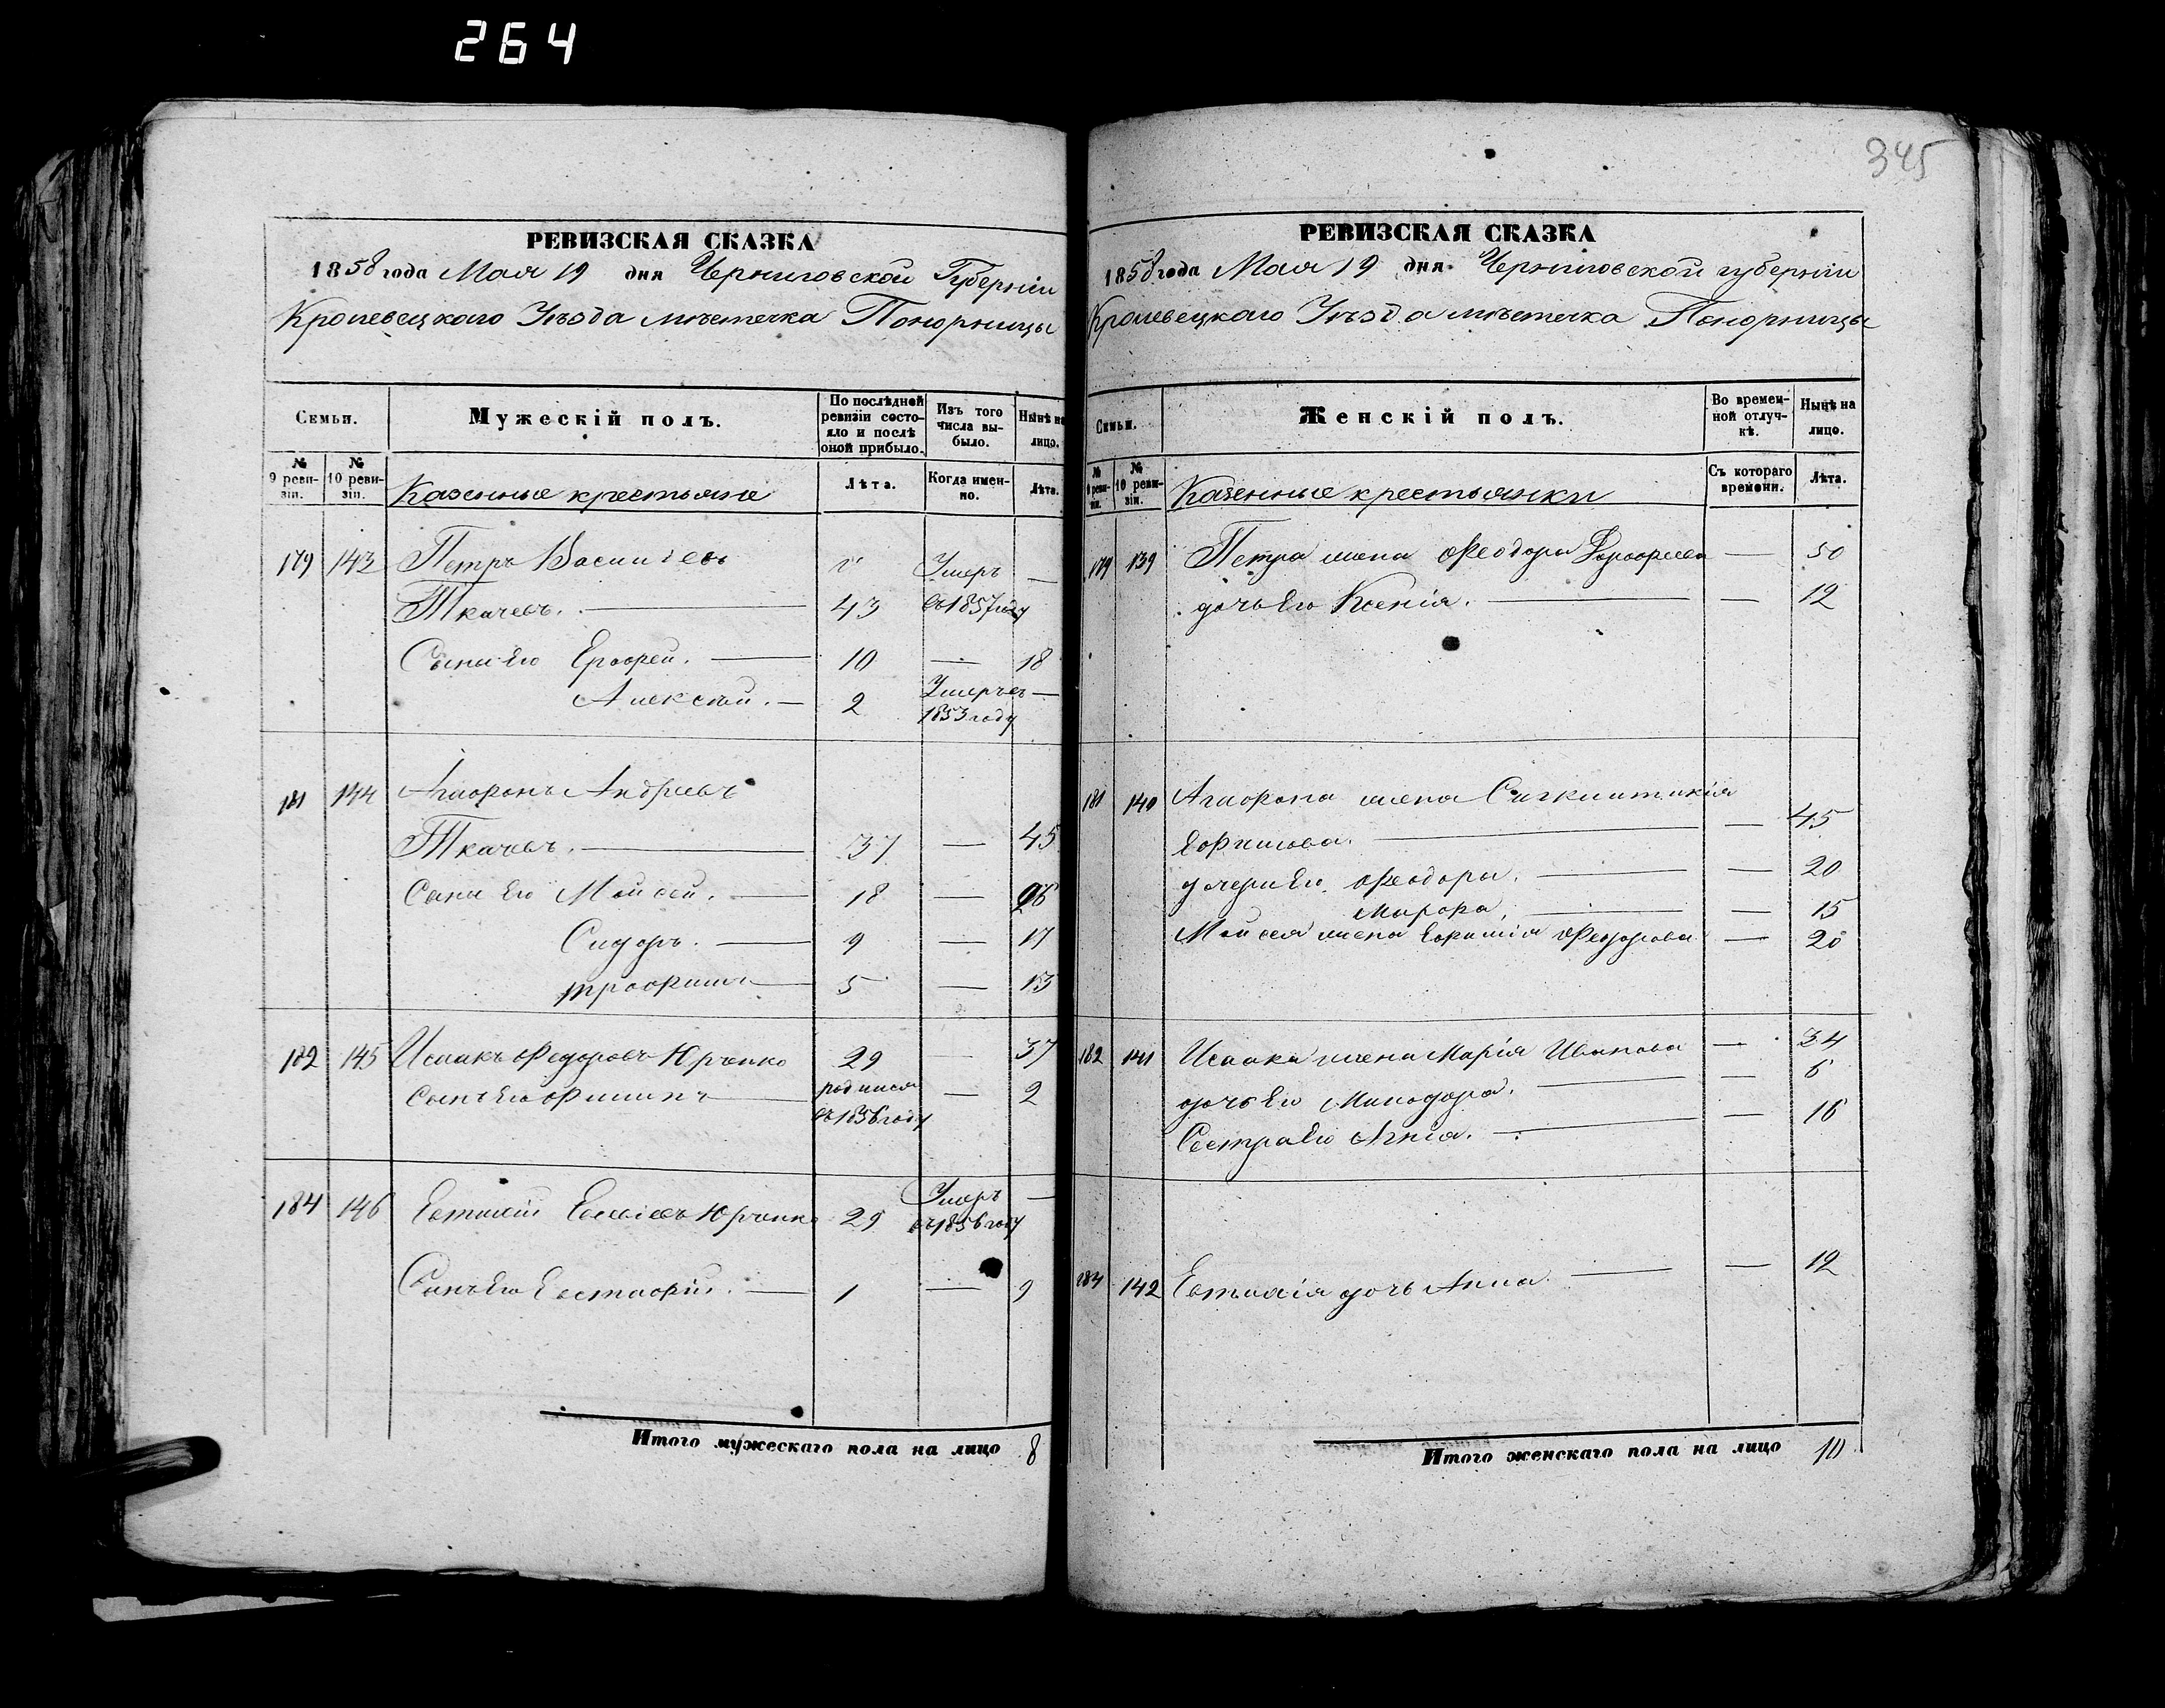 264
345
РЕВИЗСКАЯ СКАЗКА
1858 года Мая 19 дня Черниговской Губерніи
Кролевецкаго Уѣзда мѣстечка Понорницы
Семьи.
Мужескій полъ.
По послѣдней ревизіи состояло и послѣ оной прибыло.
Изъ того числа выбыло.
Нынѣ на лицо.
№ 9 ревизіи.
№ 10 ревизіи.
Казенные крестьяне
Лѣта.
Когда именно.
Лѣта.
179 143 Петръ Васильевъ Умеръ —
Ткачевъ. 43 въ 1857 году
Сыны его Ерофей. 10 — 18
Алексѣй. 2 Умеръ въ —
1853 году
181 144 Агафонъ Андреевъ
Ткачевъ. 37 — 45
Сыны его Мойсей. 18 — 26
Сидоръ. 9 — 17
Трофимъ 5 — 13
182 145 Исаакъ Федоровъ Юрченко 29 — 37
Сынъ его Филипъ родился — 2
въ 1856 году
184 146 Евтихій Юрченко 29 Умеръ —
въ 1856 году
Сынъ его Евстафій. 1 — 9
Итого мужескаго пола на лицо 8
РЕВИЗСКАЯ СКАЗКА
1858 года Мая 19 дня Черниговской губерніи
Кролевецкаго Уѣзда мѣстечка Понорницы
Семьи.
Женскій полъ.
Во временной отлучкѣ.
Нынѣ на лицо.
№ 9 ревизіи.
№ 10 ревизіи.
Казенные крестьянки
Съ котораго времени.
Лѣта.
179 139 Петра жена Феодора Дорофеева — 50
дочь его Ксенія. — 12
181 140 Агафона жена Сигклитикія
Ефимова. — 45
дочери его Феодора. — 20
Марфа. — 15
Мойсея жена Ефимія Федорова — 20
182 141 Исаака жена Марія Иванова — 34
дочь его Минодора. — 6
Сестра его Агнія. — 16
184 142 Евтихія дочь Анна — 12
Итого женскаго пола на лицо 10